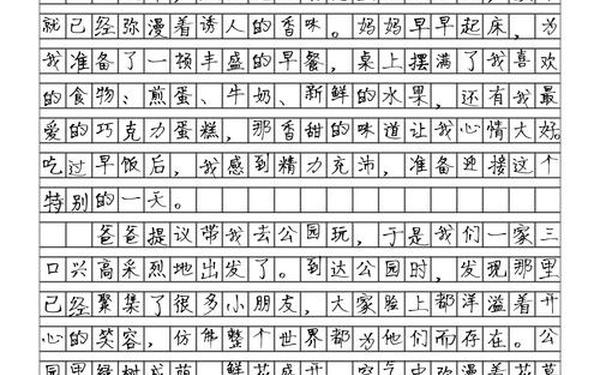 就已经弥漫着诱人的香味。妈妈早早起床，为
我准备了一顿丰盛的早餐，桌上摆满了我喜欢
的食物：煎蛋、牛奶、新鲜的水果，还有我最
爱的巧克力蛋糕，那香甜的味道让我心情大好。
吃过早饭后，我感到精力充沛，准备迎接这个
特别的一天。
爸爸提议带我去公园玩，于是我们一家三
口兴高采烈地出发了。到达公园时，发现那里
已经聚集了很多小朋友，大家脸上都洋溢着开
心的笑容，仿佛整个世界都为他们而存在。公
园里绿树成荫，鲜花盛开，空气中弥漫着花草